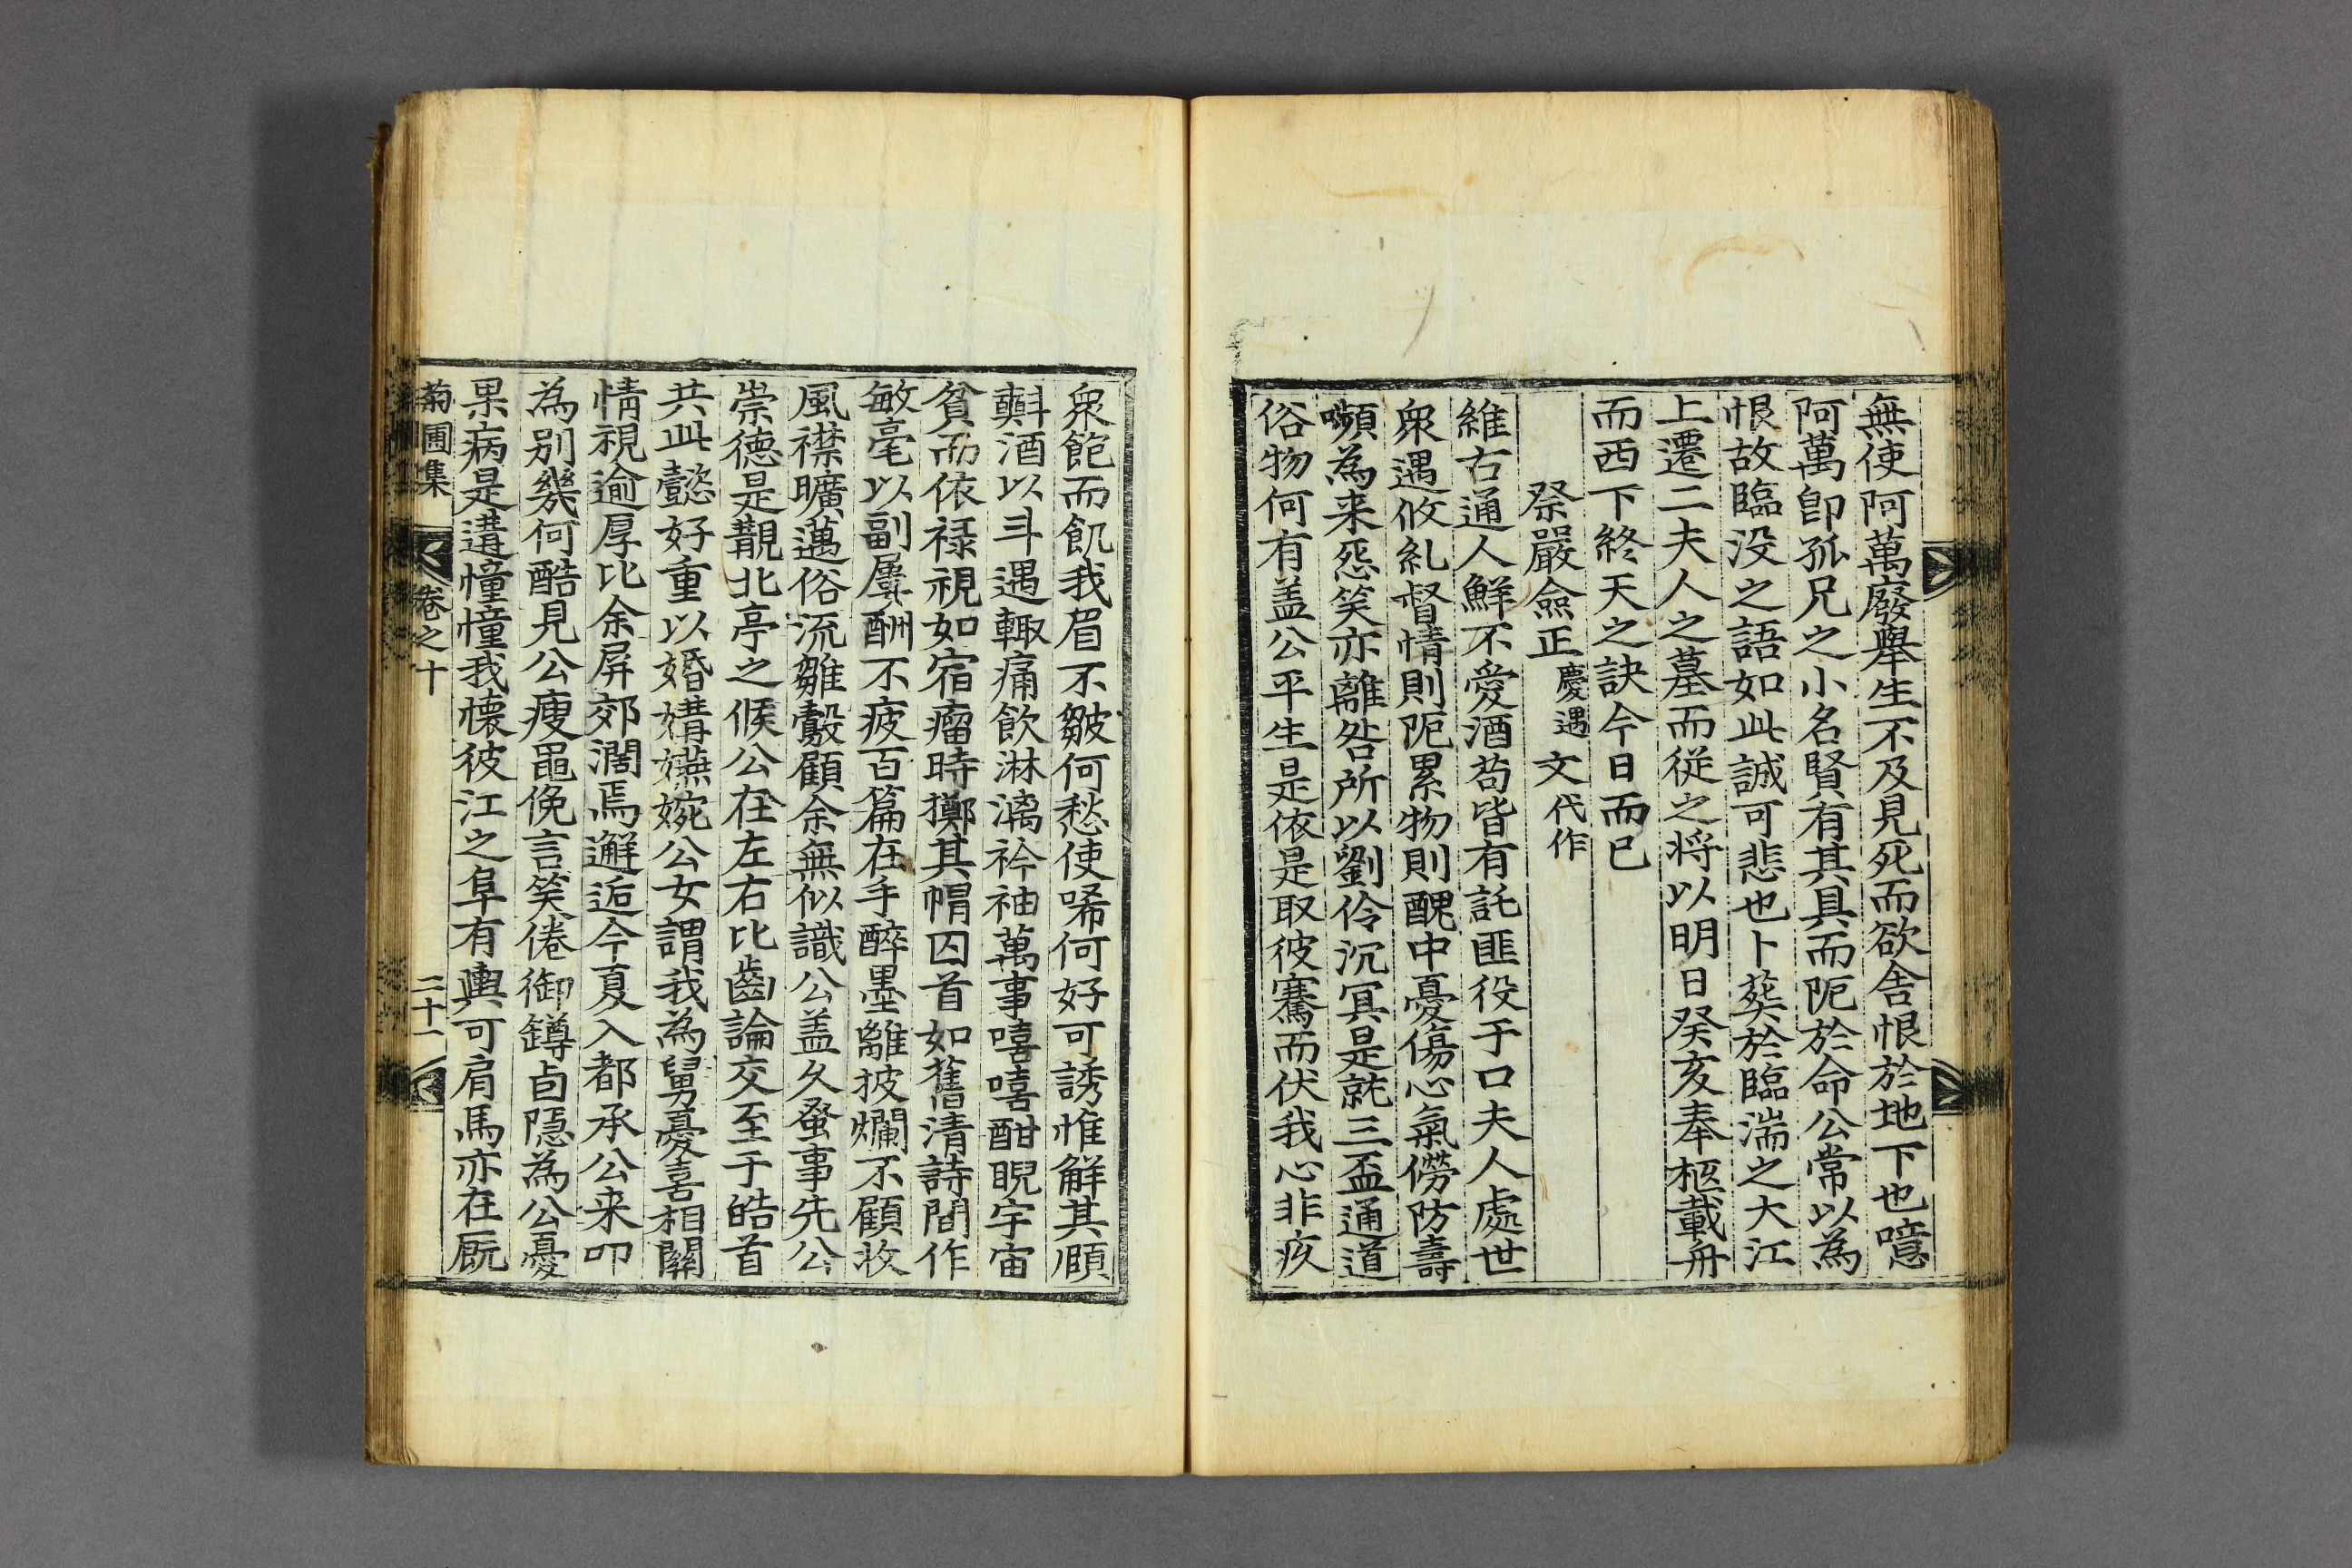 無使阿萬廢舉生不及見死而欲舍恨於地下也噫
阿萬卽孤兄之小名賢有其具而阨於命公常以為
恨故臨没之語如此誠可悲也卜葬於臨湍之大江
上遷二夫人之墓而従之将以明日癸亥奉柩載舟
而西下終天之訣今日而已
祭嚴僉正慶遇文代作
維古通人鮮不愛酒苟皆有託匪役于口夫人處世
衆遇攸糺督情則阨累物則醜中憂傷心氣僗防壽
嚬為来怨笑亦離咎所以劉伶沉冥是就三盃通道
俗物何有盖公平生是依是取彼騫而伏我心非疚
衆飽而飢我眉不皺何愁使唏何好可誘惟觧其頋
㪺酒以斗遇輙痛飲淋漓衿袖萬事嘻嘻酣睨宇宙
貧而依禄視如宿瘤時擲其帽囚首如舊清詩間作
敏毫以副屢酬不疲百篇在手醉墨離披爛不顧收
風襟曠邁俗流雛鷇顧余無似識公盖久蚤事先公
崇德是覯北亭之候公在左右比齒論交至于皓首
共此懿好重以婚媾嬿婉公女謂我為舅憂喜相關
情視逾厚比余屏郊濶焉邂逅今夏入都承公来叩
為别幾何酷見公瘦黽俛言笑倦御罇卣隱為公憂
果病是遘憧憧我懐彼江之阜有輿可肩馬亦在厩
菊圃集 卷之十 二十一